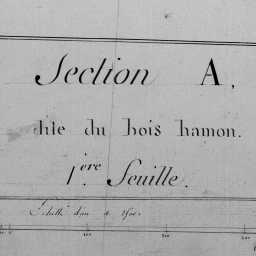 Section A,
dite du bois hamon.
1.ère feuille.
Echelle d'un à
100
200